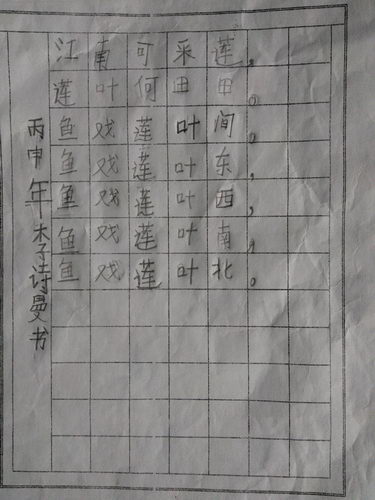 江南可采莲，
莲叶何田田。
鱼戏莲叶间。
鱼戏莲叶东，
鱼戏莲叶西，
鱼戏莲叶南，
鱼戏莲叶北。
丙申年李诗曼书